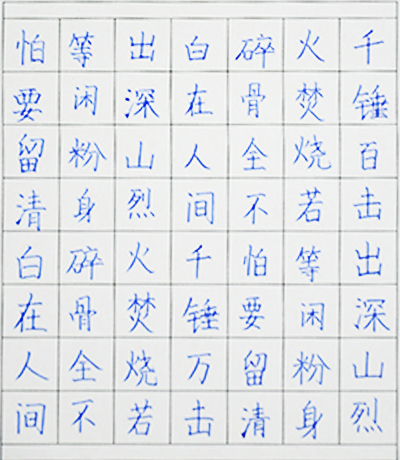 千锤百击出深山烈
火焚烧若等闲粉身
碎骨全不怕要留清
白在人间千锤万击
出深山烈火焚烧若
等闲粉身碎骨全不
怕要留清白在人间